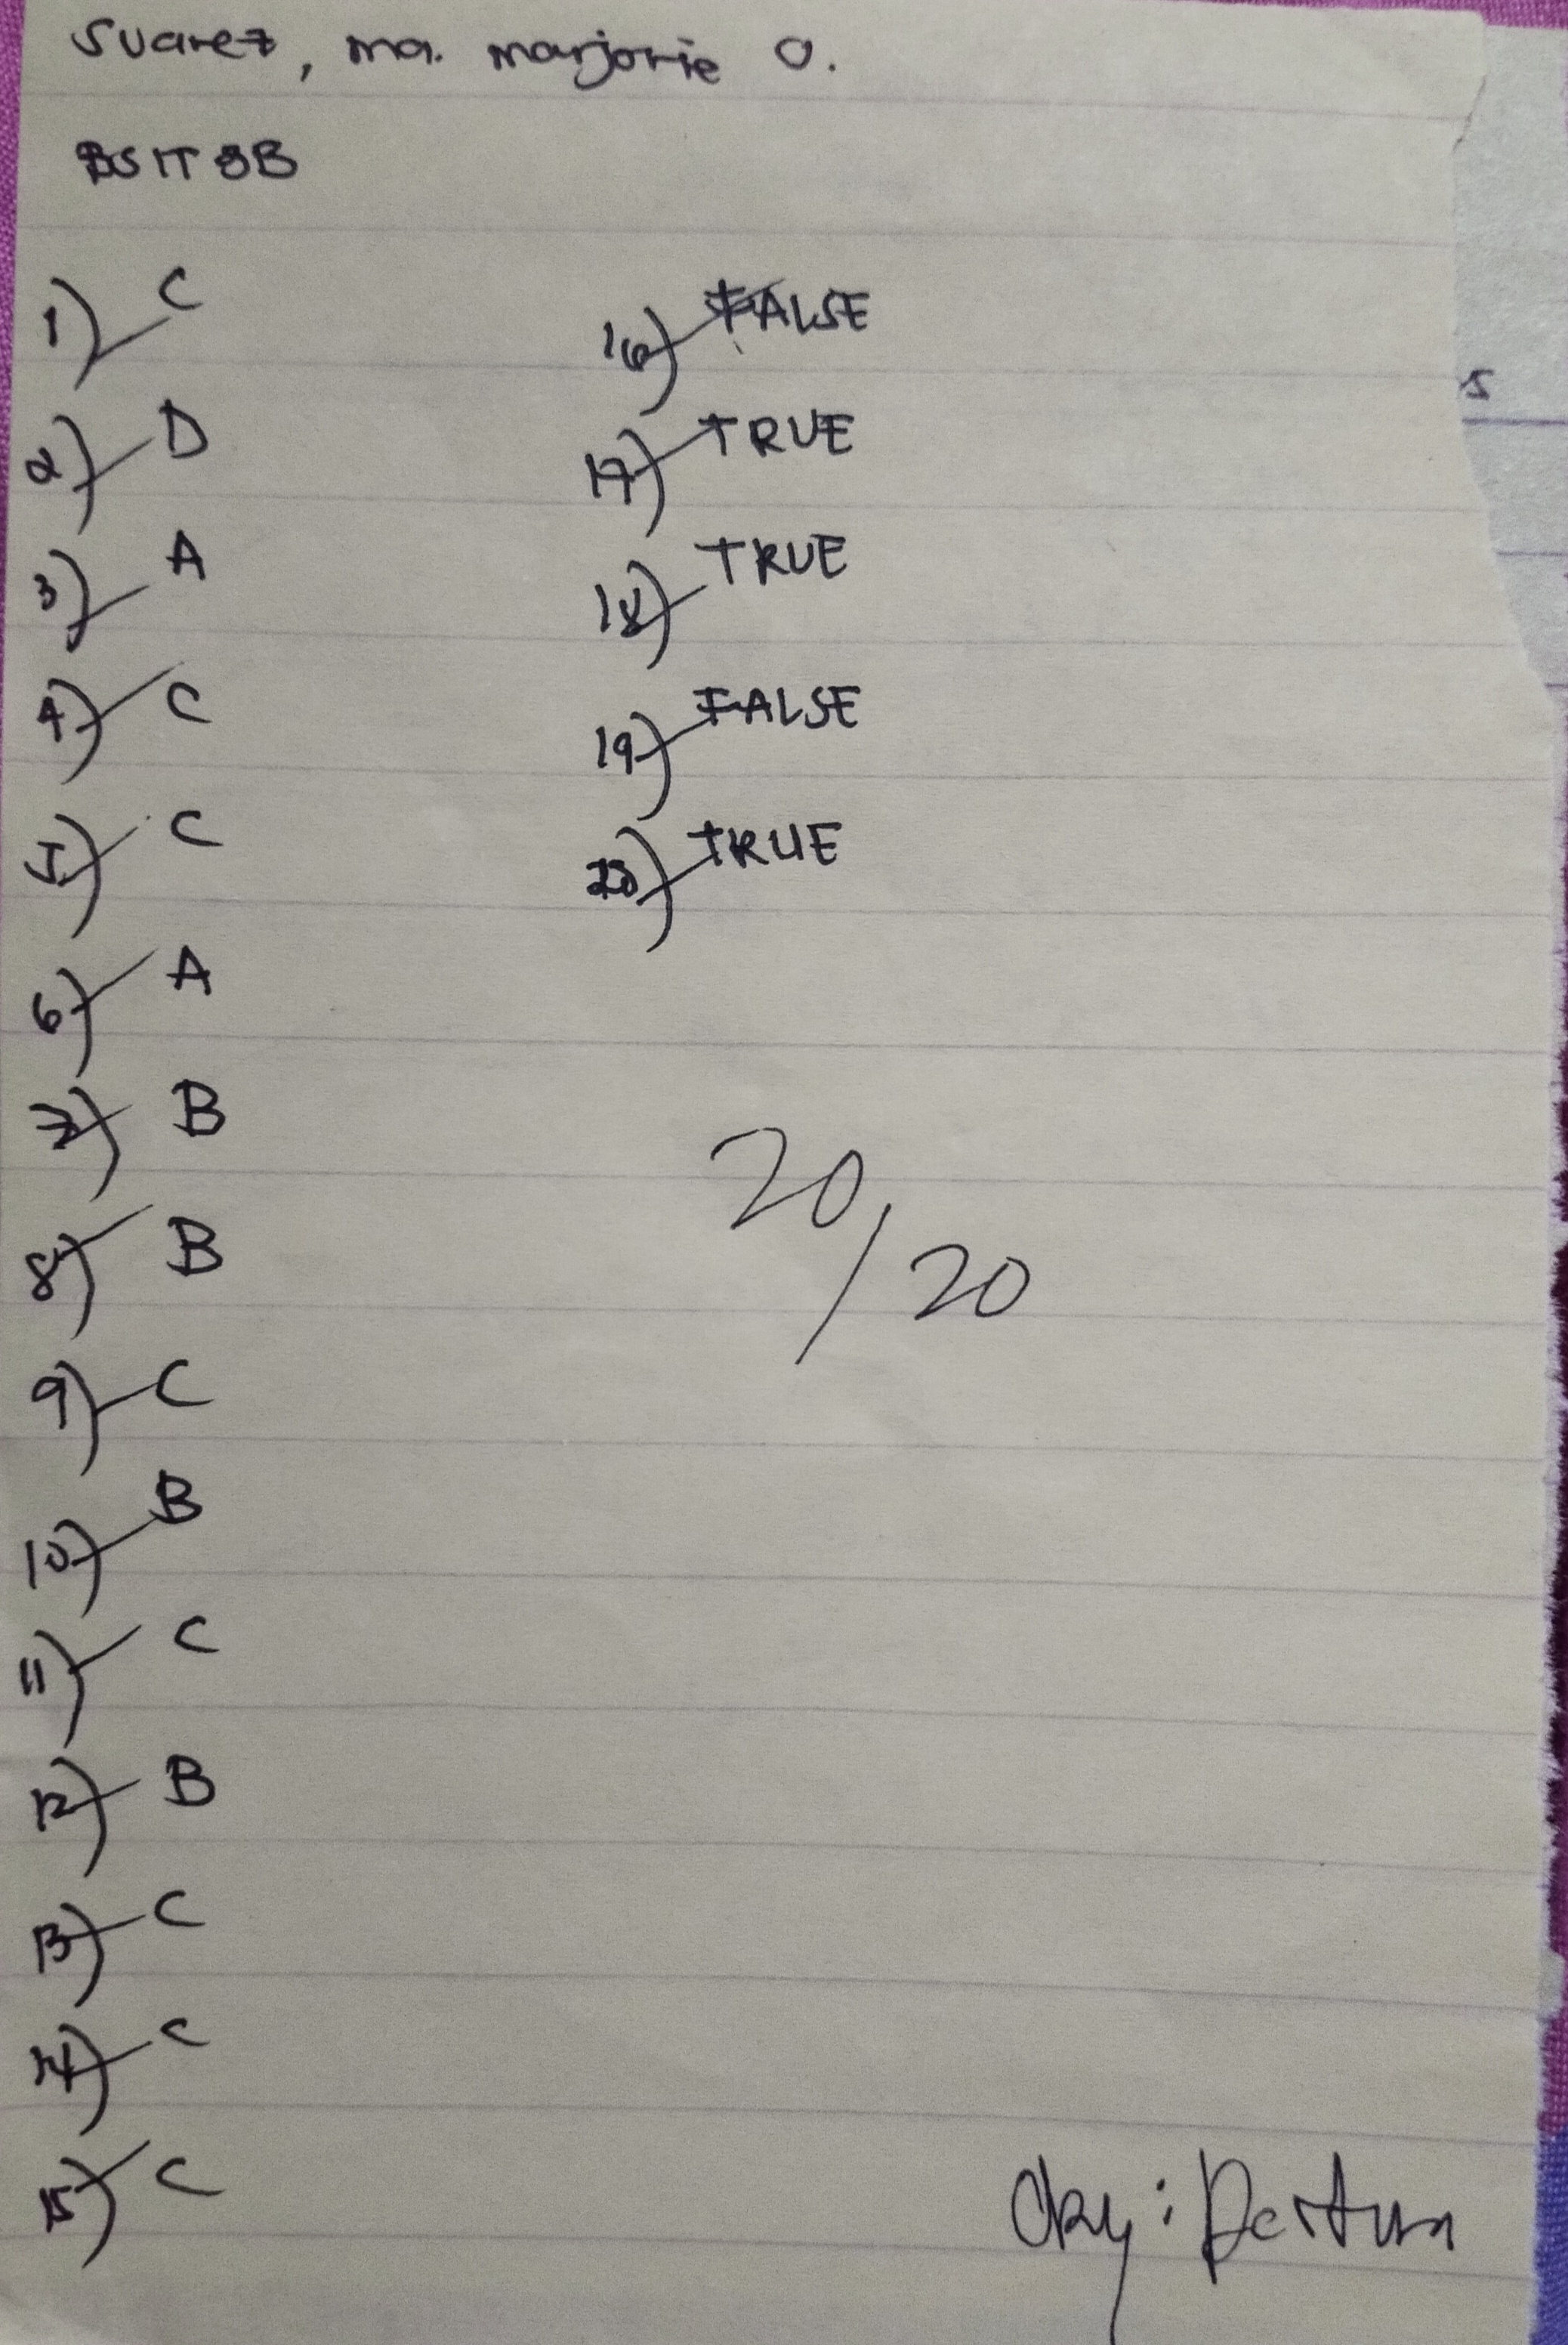 Suarez, ma. marjorie O.
BSIT 3B
1) C
2) D
3) A
4) C
5) C
6) A
7) B
8) B
9) C
10) B
11) C
12) B
13) C
14) C
15) C
16) FALSE
17) TRUE
18) TRUE
19) FALSE
20) TRUE
20/20
s